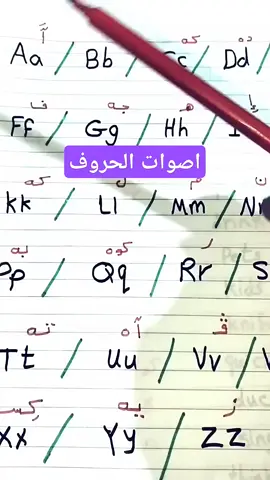 أَ كه ده
Aa / Bb / Cc / Dd
ف جه هـ إ
Ff / Gg / Hh / I
اصوات الحروف
كه ل م ن
kk / Ll / Mm / Nn
به كوه ر
Pp / Qq / Rr / S
ته آه ڤ
Tt / Uu / Vv /
كِس يه ز
Xx / Yy / ZZ